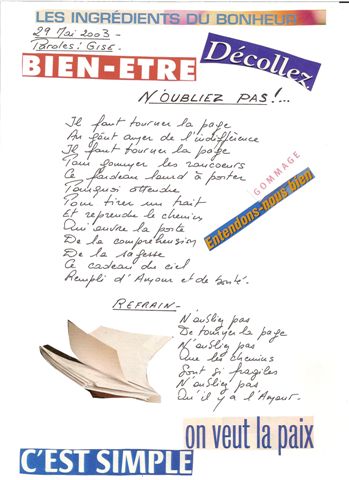 LES INGRÉDIENTS DU BONHEUR
29 Mai 2003 -
Paroles: GISE.
BIEN-ETRE
Décollez
N'OUBLIEZ PAS!...
Il faut tourner la page
Au goût amer de l'indifférence
Il faut tourner la page
Pour gommer les rancoeurs
Ce fardeau lourd à porter
Pourquoi attendre
Pour tirer un trait
Et reprendre le chemin
Qui ouvre la porte
De la compréhension
De la sagesse
Ce cadeau du ciel
Rempli d'Amour et de bonté.
GOMMAGE
Entendons-nous bien
REFRAIN -
N'oubliez pas
De tourner la page
N'oubliez pas
Que les chemins
Sont si fragiles
N'oubliez pas
Qu'il y a l'Amour.
on veut la paix
C'EST SIMPLE